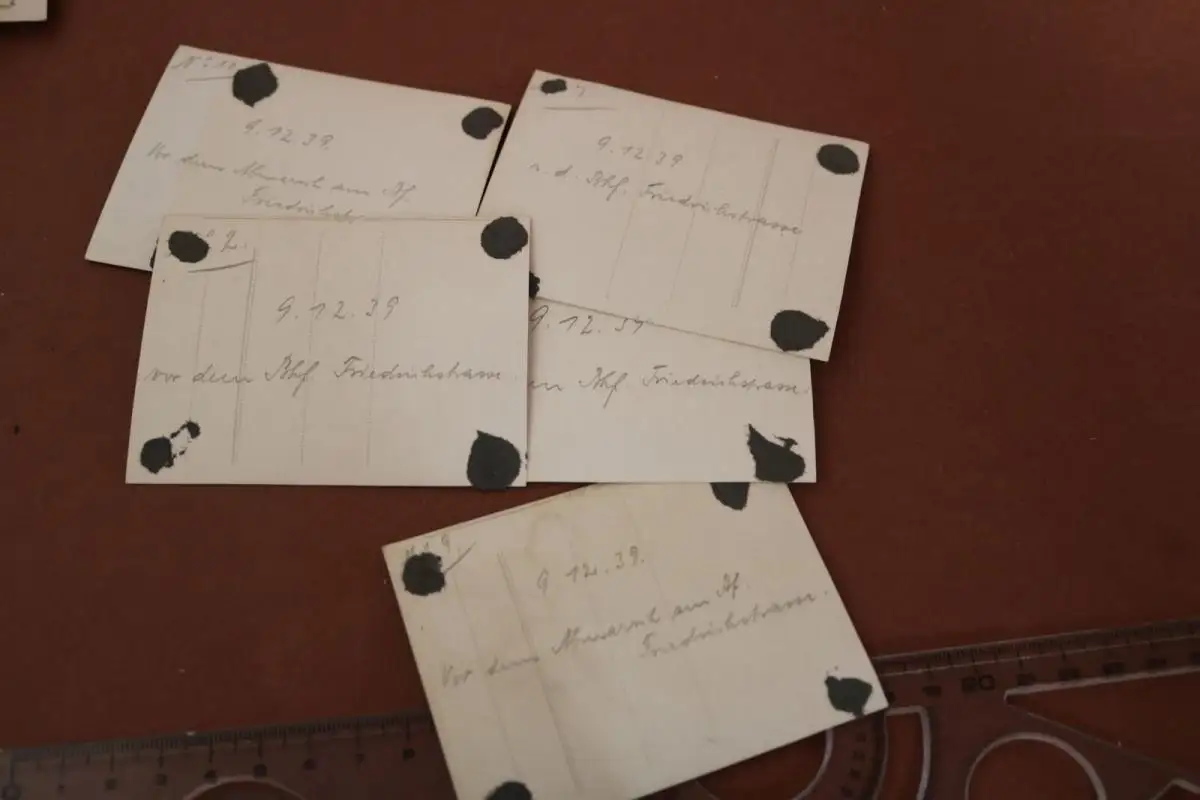 9.12.39.
Vor dem Abmarsch am Bf.
Friedrichstr
7
9.12.39
a. d. Bhf. Friedrichstrasse
2.
9.12.39
vor dem Bhf. Friedrichstrasse
9.12.39
Bhf. Friedrichstrasse.
9.12.39.
Vor dem Abmarsch am Bf.
Friedrichstrasse.